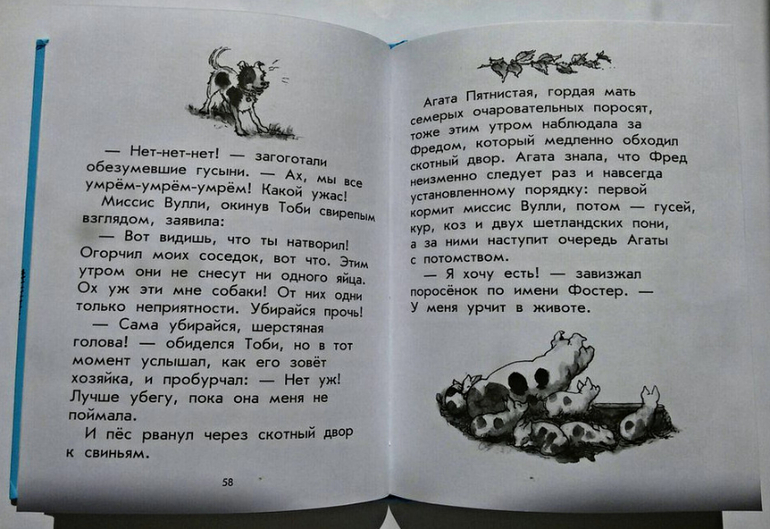 — Нет-нет-нет! — загоготали
обезумевшие гусыни. — Ах, мы все
умрём-умрём-умрём! Какой ужас!
Миссис Вулли, окинув Тоби свирепым
взглядом, заявила:
— Вот видишь, что ты натворил!
Огорчил моих соседок, вот что. Этим
утром они не снесут ни одного яйца.
Ох уж эти мне собаки! От них одни
только неприятности. Убирайся прочь!
— Сама убирайся, шерстяная
голова! — обиделся Тоби, но в тот
момент услышал, как его зовёт
хозяйка, и пробурчал: — Нет уж!
Лучше убегу, пока она меня не
поймала.
И пёс рванул через скотный двор
к свиньям.
58
Агата Пятнистая, гордая мать
семерых очаровательных поросят,
тоже этим утром наблюдала за
Фредом, который медленно обходил
скотный двор. Агата знала, что Фред
неизменно следует раз и навсегда
установленному порядку: первой
кормит миссис Вулли, потом — гусей,
кур, коз и двух шетландских пони,
а за ними наступит очередь Агаты
с потомством.
— Я хочу есть! — завизжал
поросёнок по имени Фостер. —
У меня урчит в животе.